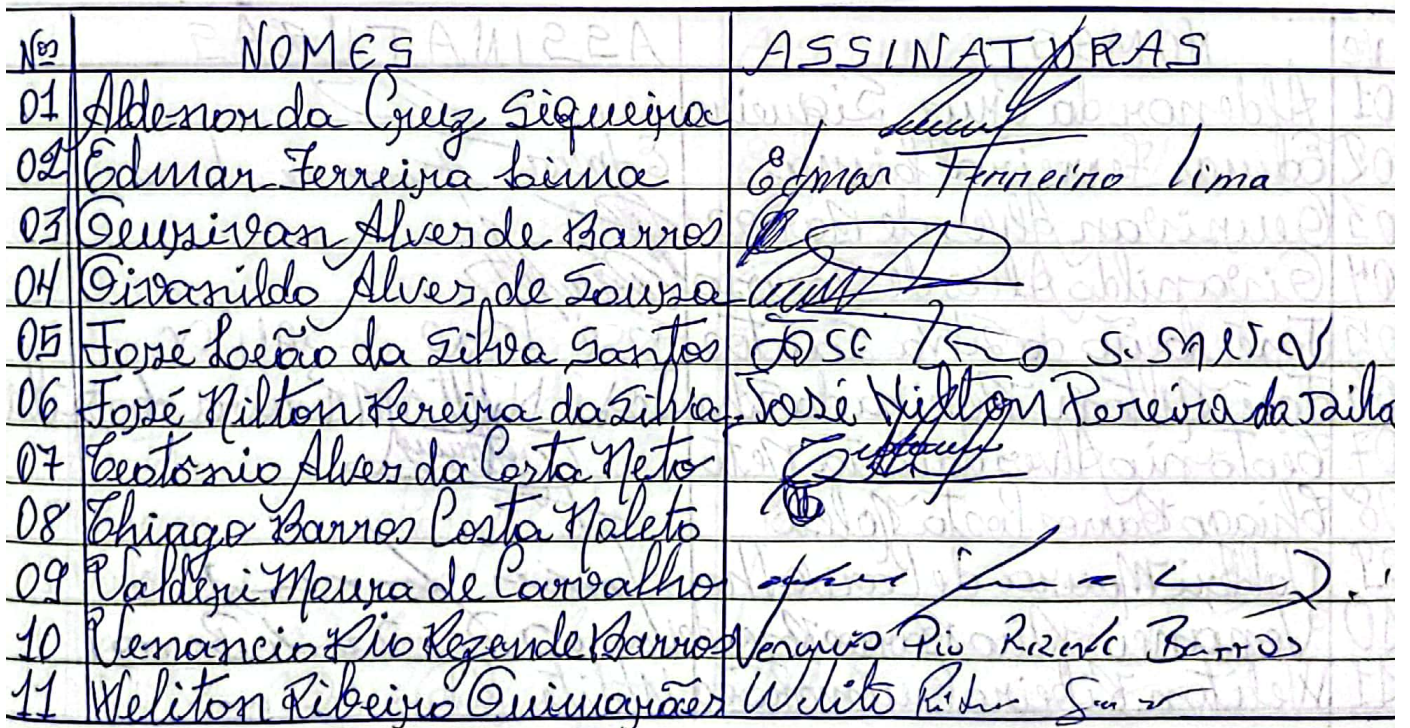 Nos NOMES ASSINATURAS
01 Aldenor da Cruz Siqueira
02 Edmar Ferreira Lima Edmar Ferreira Lima
03 Geusivan Alves de Barros
04 Givanildo Alves de Sousa
05 José Loeão da Silva Santos José
06 José Nilton Pereira da Silva José Nilton Pereira da Silva
07 Teotônio Alves da Costa Neto
08 Thiago Barros Costa Noleto
09 Valderi Moura de Carvalho
10 Venancio Pio Rezende Barros Venancio Pio Rezende Barros
11 Weliton Ribeiro Guimarães